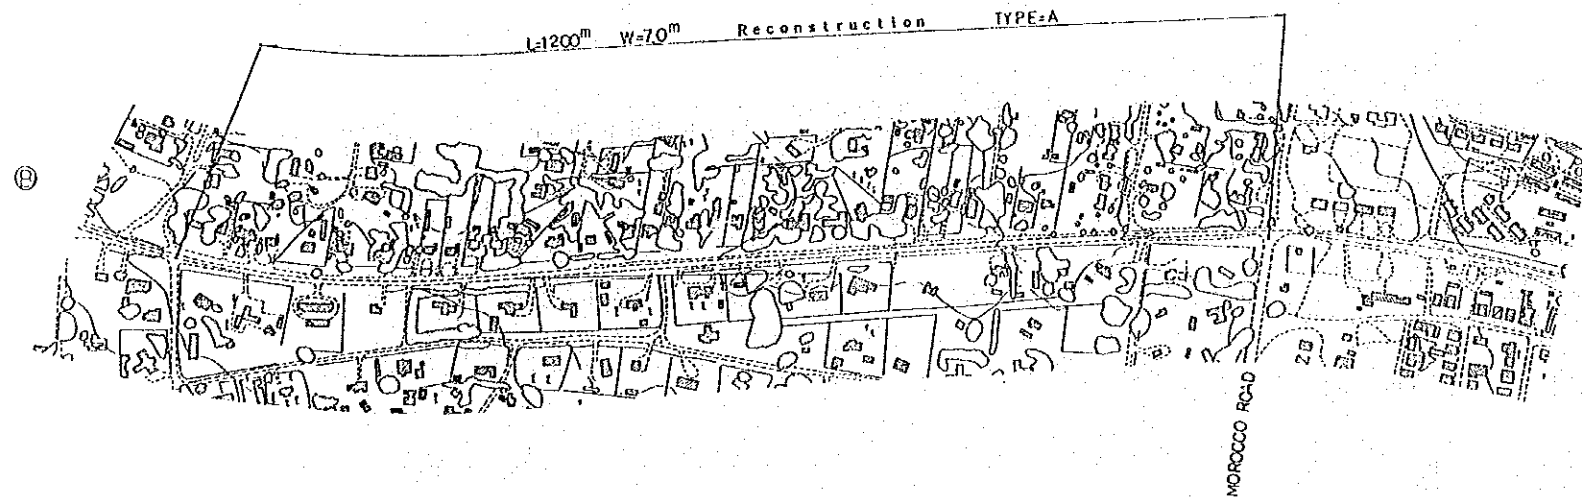 L=1200m W=7.0m Reconstruction TYPE=A
⑧
MOROCCO ROAD